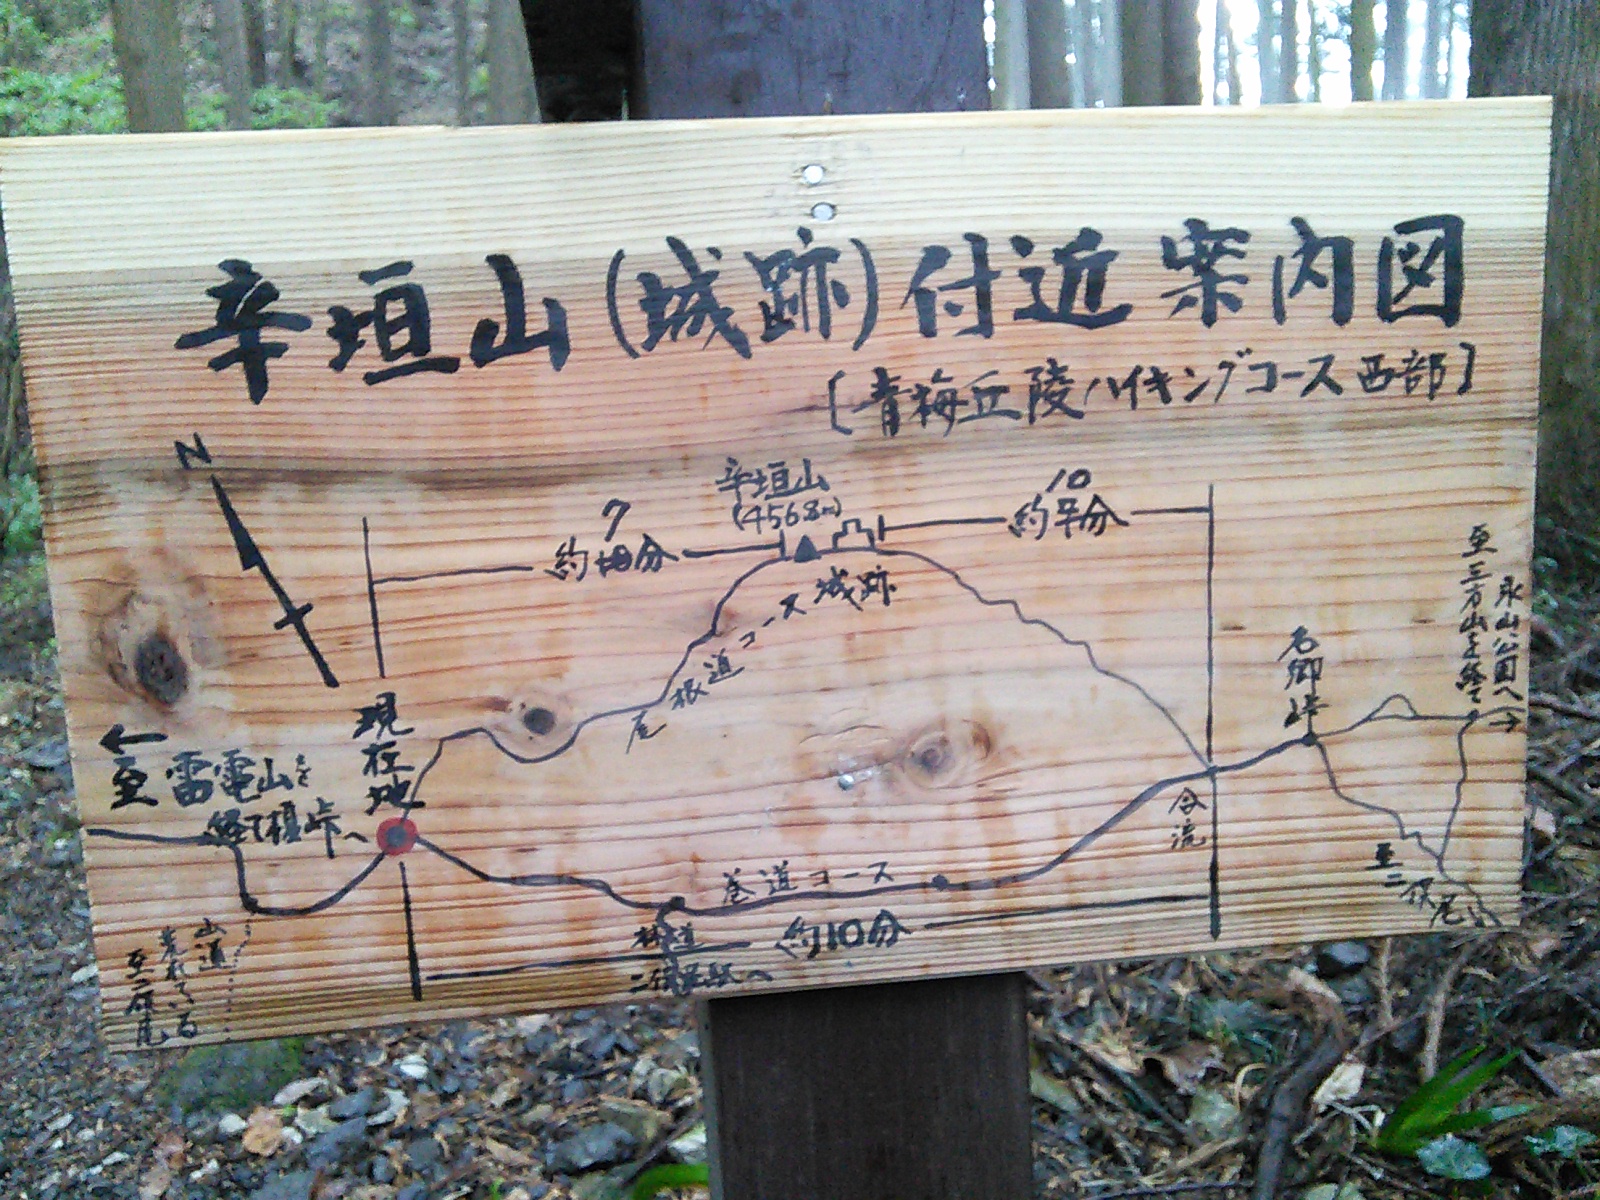 辛垣山(城跡)付近案内図
[青梅丘陵ハイキングコース西部]
N
辛垣山
(456.8m)
7
約 分
10
約 分
城跡
尾根道コース
至三方山を経て
永山公園へ
名郷峠
現在地
←
至雷電山を
経て榎峠へ
合流
巻道コース
約10分
林道
二俣尾駅へ
至二俣尾
山道
荒れている
至二俣尾